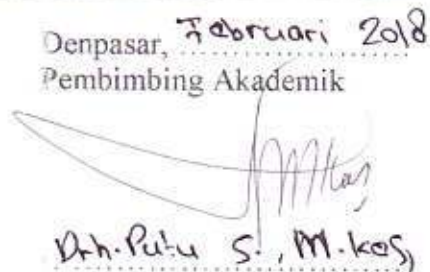 Denpasar, Februari 2018
Pembimbing Akademik
Drh. Putu S., M.kes,